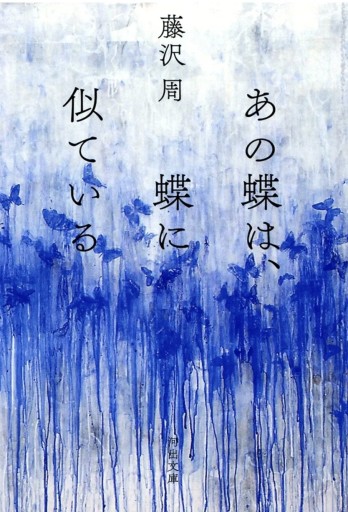 あの蝶は、
蝶に
似ている
藤沢 周
河出文庫